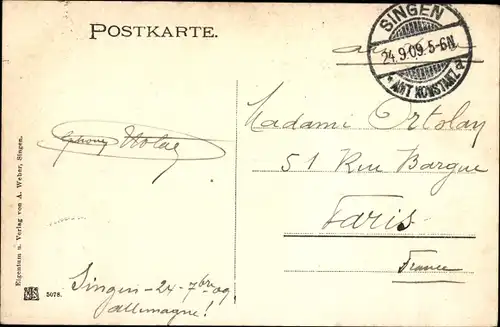 POSTKARTE.
SINGEN
24.9.09.5-6N.
* AMT KONSTANZ a
Madame Ortslay
51 Rue Bargue
Paris
France
Singen - 24 - 7bre 09
allemagne!
Eigentum u. Verlag von A. Weber, Singen.
5078.